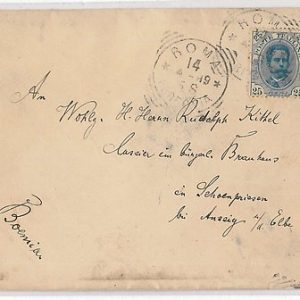 ROMA
ROMA
14
4-19
S
POSTE ITALIANE
25 25
An
Wohlg. H. Herrn Rudolph Kittel
Cassier im bürgerl. Brauhaus
in Schoenpriesen
bei Aussig a/d Elbe
Boemia